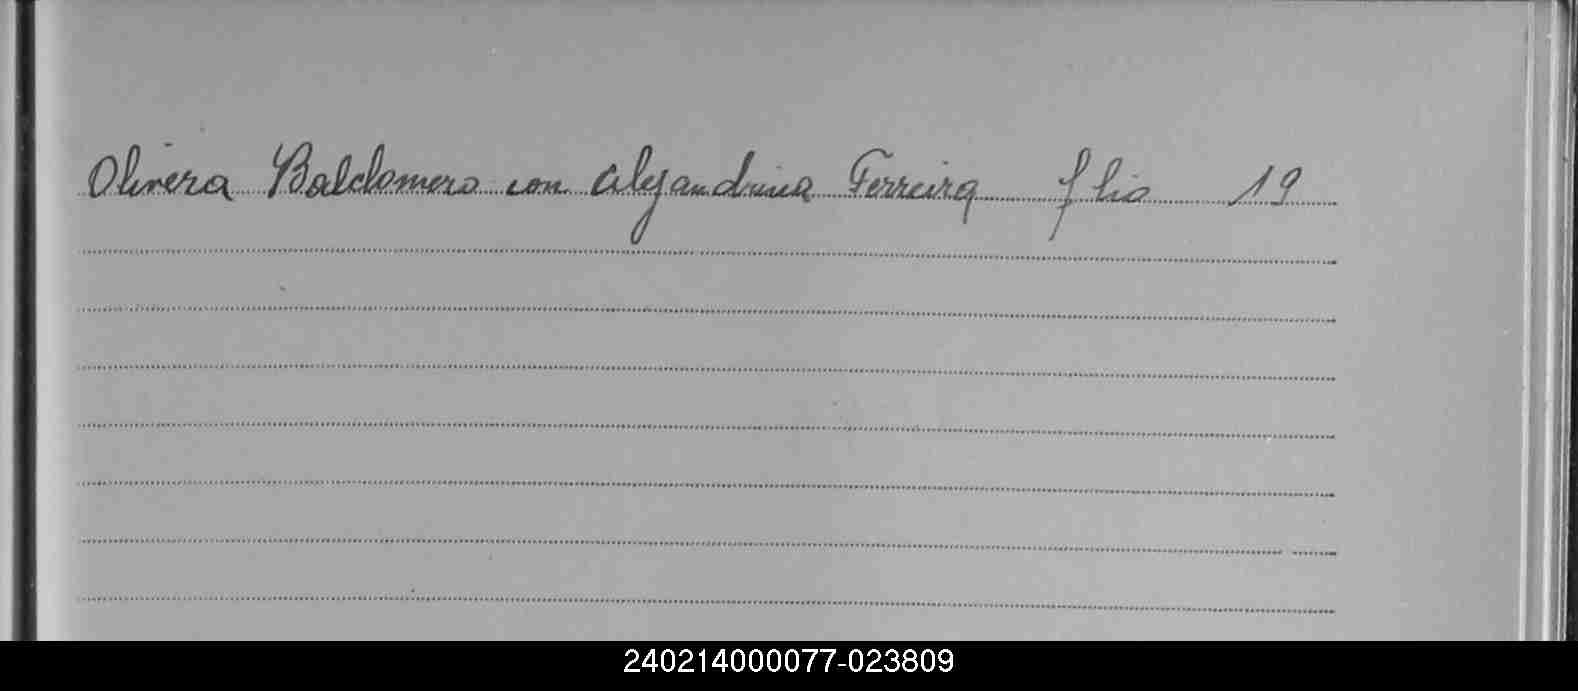 Olivera Baldomero con Alejandrina Ferreira flio 19
240214000077-023809